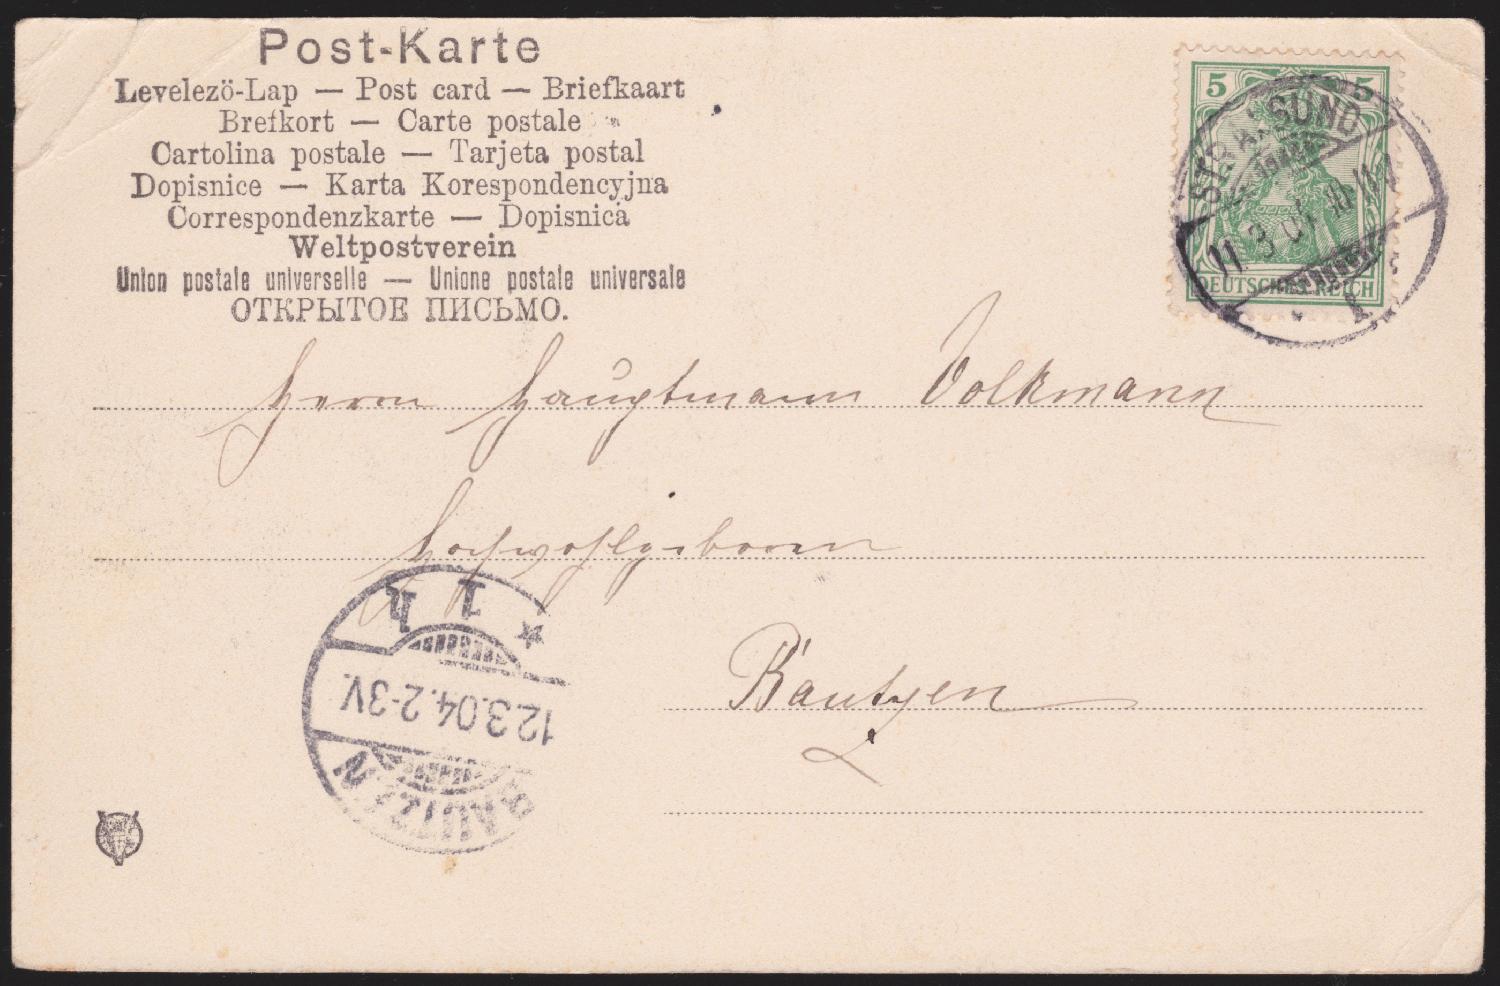 Post-Karte
Levelezö-Lap — Post card — Briefkaart
Brefkort — Carte postale
Cartolina postale — Tarjeta postal
Dopisnice — Karta Korespondencyjna
Correspondenzkarte — Dopisnica
Weltpostverein
Union postale universelle — Unione postale universale
ОТКРЫТОЕ ПИСЬМО.
5 5
DEUTSCHES REICH
STRALSUND
11.3.04. 10-11V
Herrn Hauptmann Volkmann
Hochwohlgeboren
Bautzen
BAUTZEN
12.3.04. 2-3V.
1 h